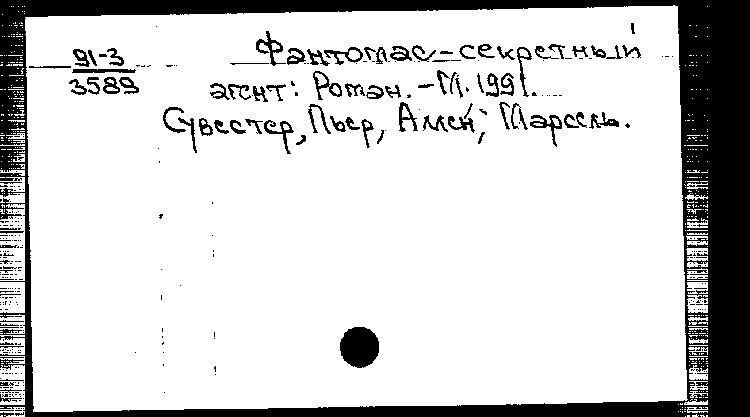 91-3
3589
Фантомас-секретный
агент: Роман. - М. 1991.
Сувестер, Пьер, Ален, Марсель.